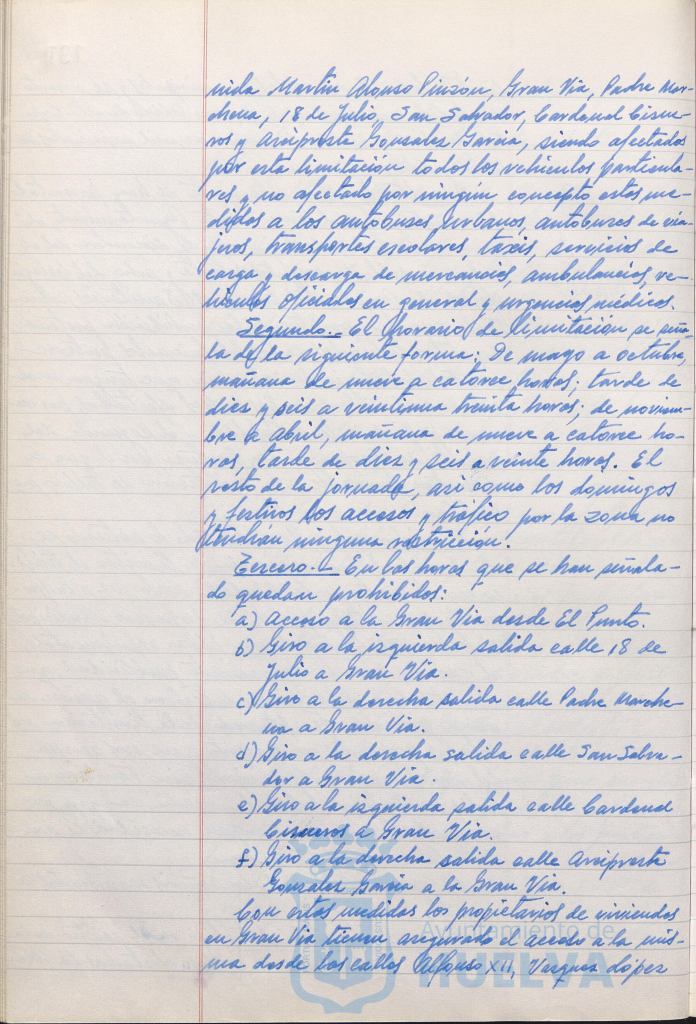 nida Martín Alonso Pinzón, Gran Vía, Padre Mar-
chena, 18 de Julio, San Salvador, Cardenal Cisne-
ros y Arcipreste Gonzalez Garcia, siendo afectados
por esta limitación todos los vehiculos particula-
res y no afectado por ningún concepto estas me-
didas a los autobuses urbanos, autobuses de via-
jeros, transportes escolares, taxis, servicios de
carga y descarga de mercancias, ambulancias, ve-
hiculos oficiales en general y urgencias médicas.
Segundo.- El horario de limitación se seña-
la de la siguiente forma: De mayo a octubre,
mañana de nueve a catorce horas; tarde de
diez y seis a veintiuna treinta horas; de noviem-
bre a Abril, mañana de nueve a catorce ho-
ras, tarde de diez y seis a veinte horas. El
resto de la jornada, así como los domingos
y festivos los accesos y tráfico por la zona no
tendrán ninguna restricción.
Tercero.- En las horas que se han señala-
do quedan prohibidos:
a) Acceso a la Gran Vía desde El Punto.
b) Giro a la izquierda salida calle 18 de
Julio a Gran Vía.
c) Giro a la derecha salida calle Padre Marche-
na a Gran Vía.
d) Giro a la derecha salida calle San Salva-
dor a Gran Vía.
e) Giro a la izquierda salida calle Cardenal
Cisneros a Gran Vía.
f) Giro a la derecha salida calle Arcipreste
Gonzalez Garcia a la Gran Vía.
Con estas medidas los propietarios de viviendas
en Gran Vía tienen asegurado el acceso a la mis-
ma desde las calles Alfonso XII, Vazquez López
Ayuntamiento de
HUELVA